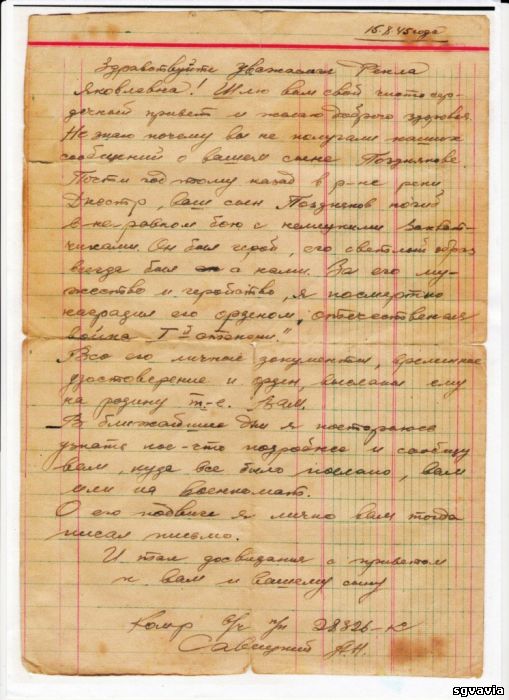 15.8.45 года
Здравствуйте уважаемая
Яковлевна! Шлю вам свой чисто сер-
дечный привет и желаю доброго здоровья.
Не знаю почему вы не получали наших
сообщений о вашем сыне Позднякове.
Почти год тому назад в р-не реки
Днестр, ваш сын Поздняков погиб
в неравном бою с немецкими захват-
чиками. Он был герой, его светлый образ
всегда был с нами. За его му-
жество и геройство, я посмертно
наградил его орденом, отечественная
война I й степени."
Все его личные документы, временное
удостоверение и орден, высланы ему
на родину т-е. Вам.
В ближайшие дни я постараюсь
узнать кое-что подробнее и сообщу
вам, куда все было послано, вам
или на военкомат.
О его подвиге я лично вам тогда
писал письмо.
И так досвидания с приветом
к вам и вашему сыну
Комр в/ч п/п 28326-к
Савицкий А.Н.
sgvavia